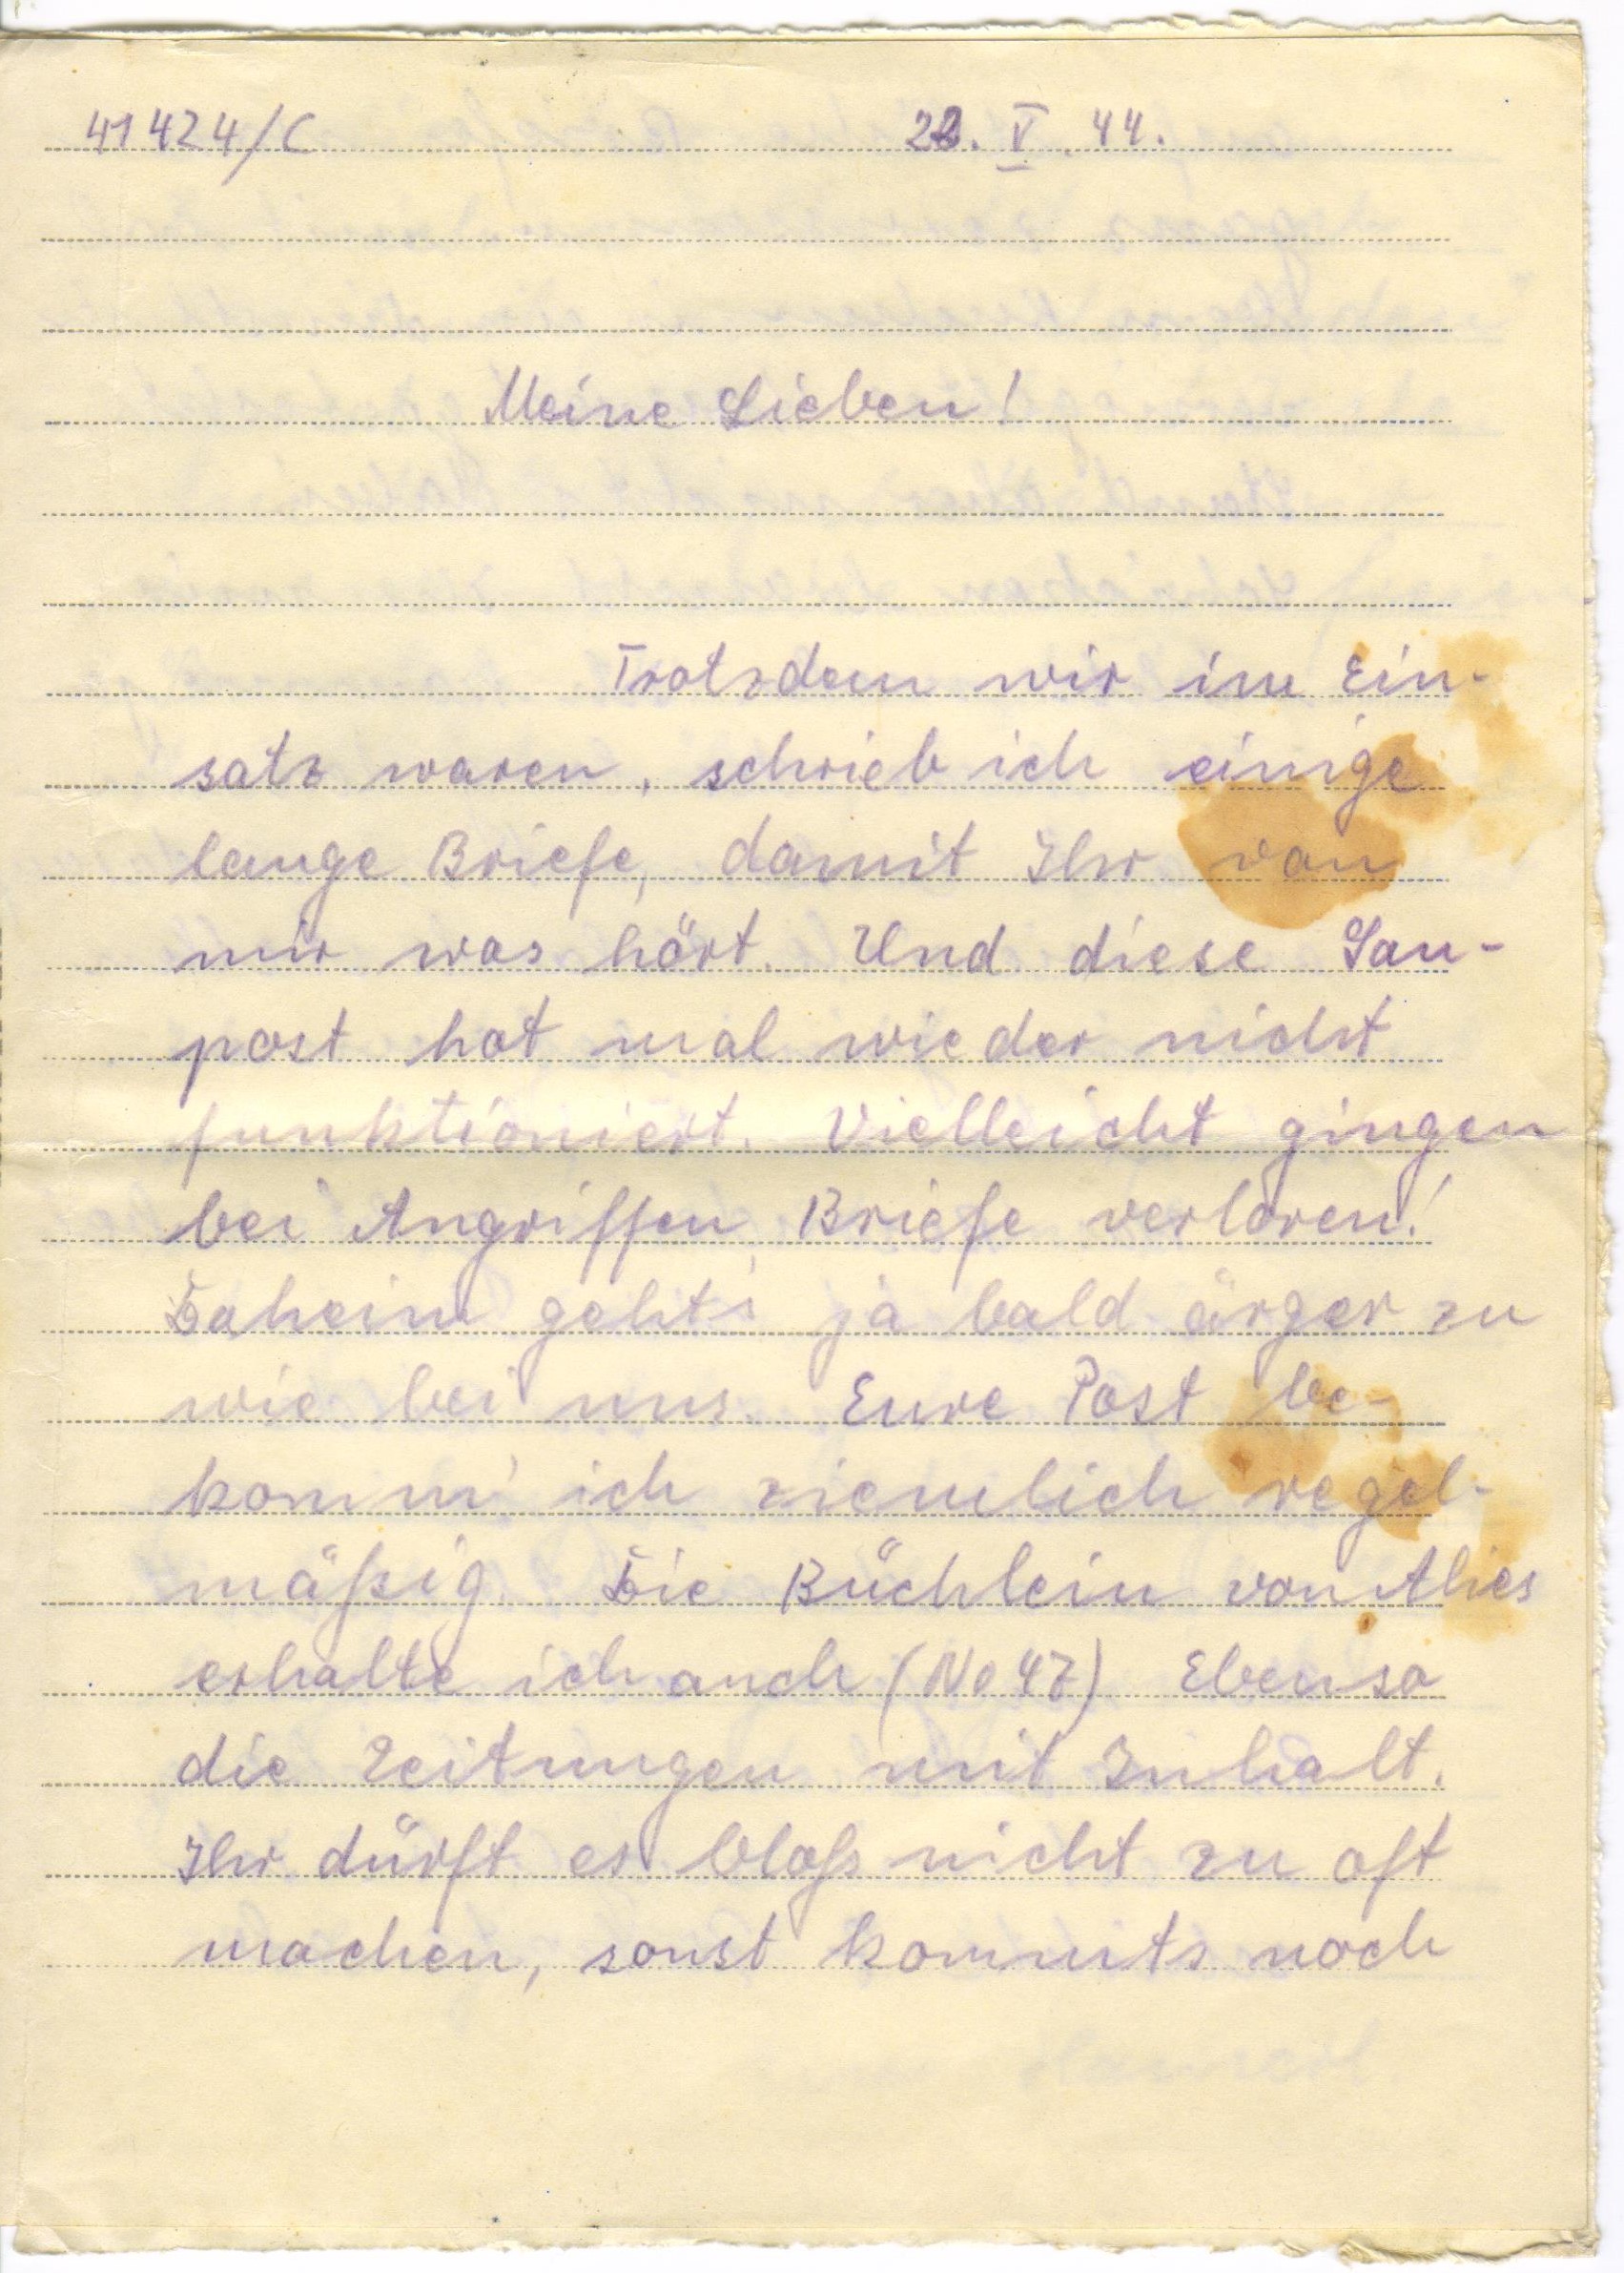 41424/C 22. V. 44.
Meine Lieben!
Trotzdem wir im Ein-
satz waren, schrieb ich einige
lange Briefe, damit Ihr von
mir was hört. Und diese Sau-
post hat mal wieder nicht
funktioniert. Vielleicht gingen
bei Angriffen Briefe verloren!
Daheim gehts ja bald ärger zu
wie bei uns. Eure Post be-
komm' ich ziemlich regel-
mäßig. Die Büchlein von Alies
erhalte ich auch (No 47) Ebenso
die Zeitungen mit Inhalt.
Ihr dürft es bloß nicht zu oft
machen, sonst kommts noch